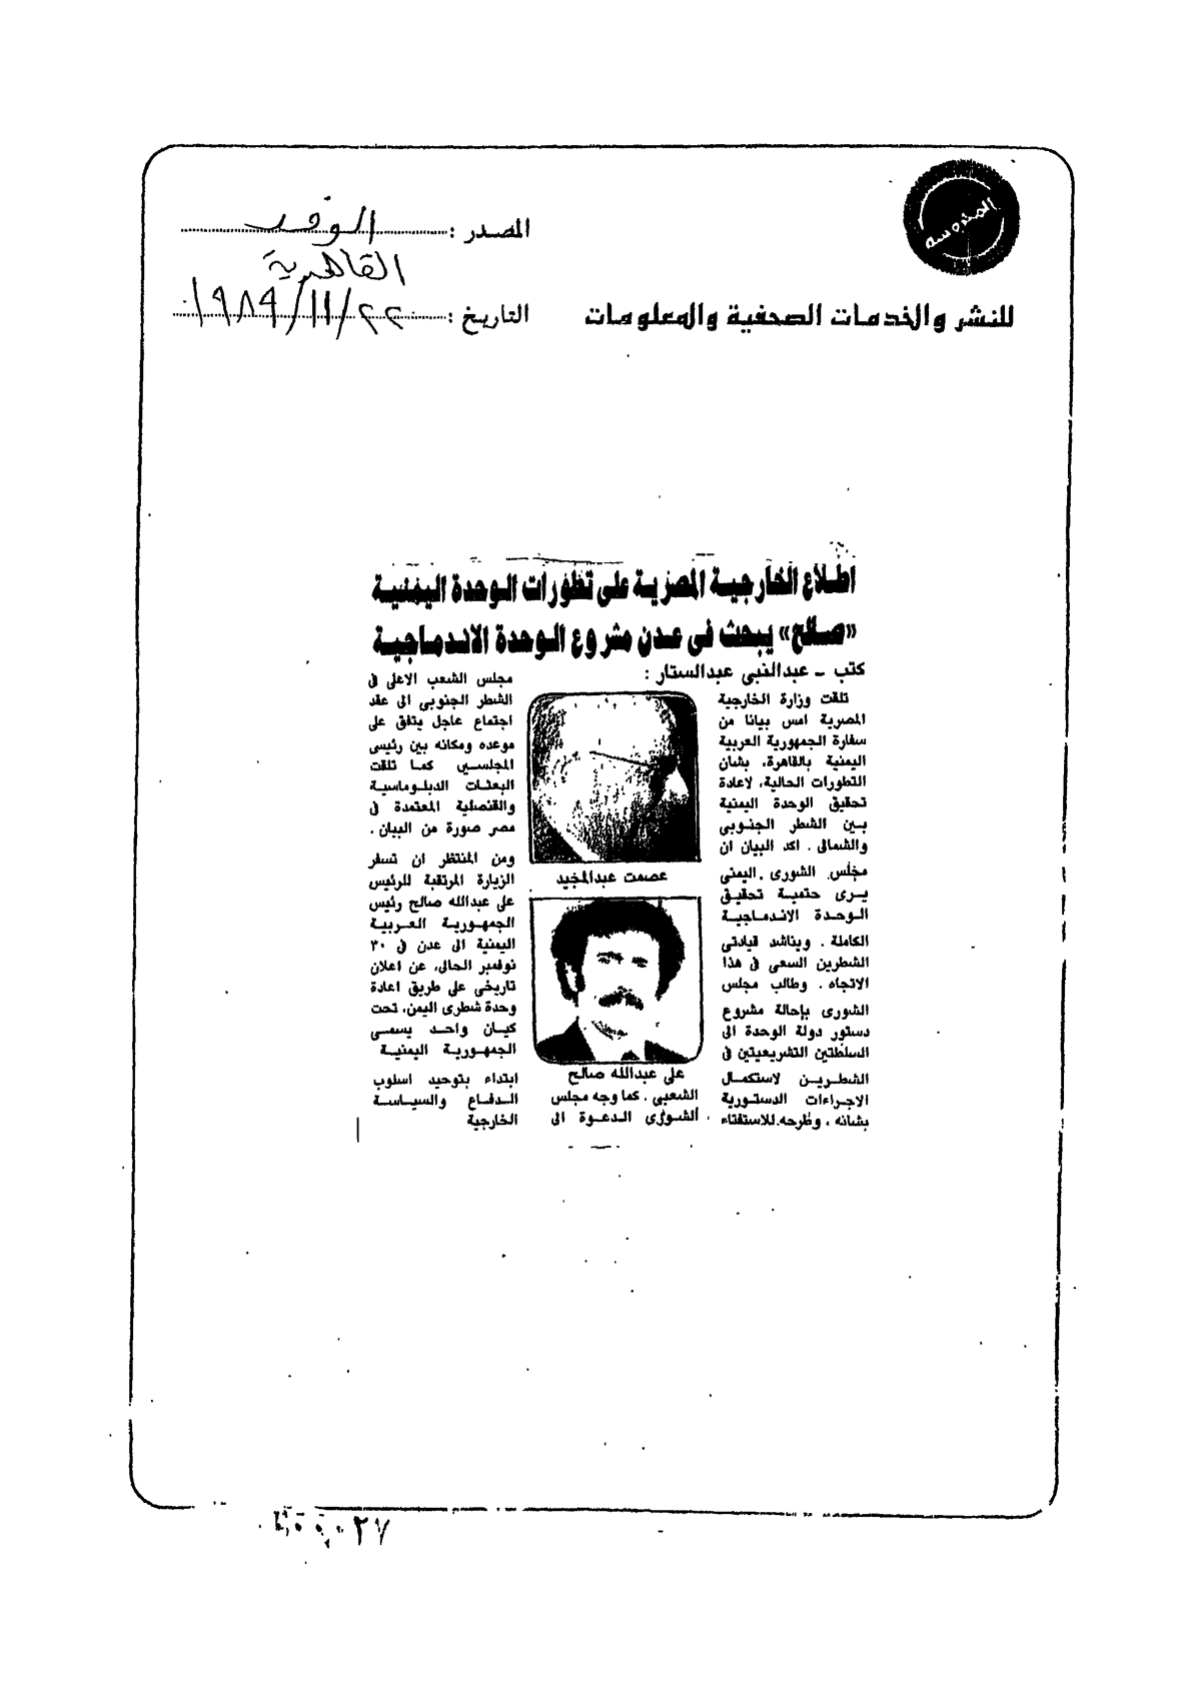 المحروسة
المصدر : الوفد
القاهرية
للنشر والخدمات الصحفية والمعلومات
التاريخ : ٢٢/١١/١٩٨٩
اطلاع الخارجية المصرية على تطورات الوحدة اليمنية
«صالح» يبحث فى عدن مشروع الوحدة الاندماجية
كتب - عبدالنبى عبدالستار :
تلقت وزارة الخارجية
المصرية امس بيانا من
سفارة الجمهورية العربية
اليمنية بالقاهرة، بشان
التطورات الحالية، لاعادة
تحقيق الوحدة اليمنية
بين الشطر الجنوبى
والشمالى . اكد البيان ان
مجلس الشورى اليمنى
يرى حتمية تحقيق
الوحدة الاندماجية
الكاملة . ويناشد قيادتى
الشطرين السعى فى هذا
الاتجاه . وطالب مجلس
الشورى بإحالة مشروع
دستور دولة الوحدة الى
السلطتين التشريعيتين فى
الشطرين لاستكمال
الاجراءات الدستورية
بشانه ، وطرحه للاستفتاء
عصمت عبدالمجيد
على عبدالله صالح
الشعبى . كما وجه مجلس
الشورى الدعوة الى
مجلس الشعب الاعلى فى
الشطر الجنوبى الى عقد
اجتماع عاجل يتفق على
موعده ومكانه بين رئيسى
المجلسين كما تلقت
البعثات الدبلوماسية
والقنصلية المعتمدة فى
مصر صورة من البيان .
ومن المنتظر ان تسفر
الزيارة المرتقبة للرئيس
على عبدالله صالح رئيس
الجمهورية العربية
اليمنية الى عدن فى ٣٠
نوفمبر الحالى، عن اعلان
تاريخى على طريق اعادة
وحدة شطرى اليمن، تحت
كيان واحد يسمى
الجمهورية اليمنية
ابتداء بتوحيد اسلوب
الدفاع والسياسة
الخارجية